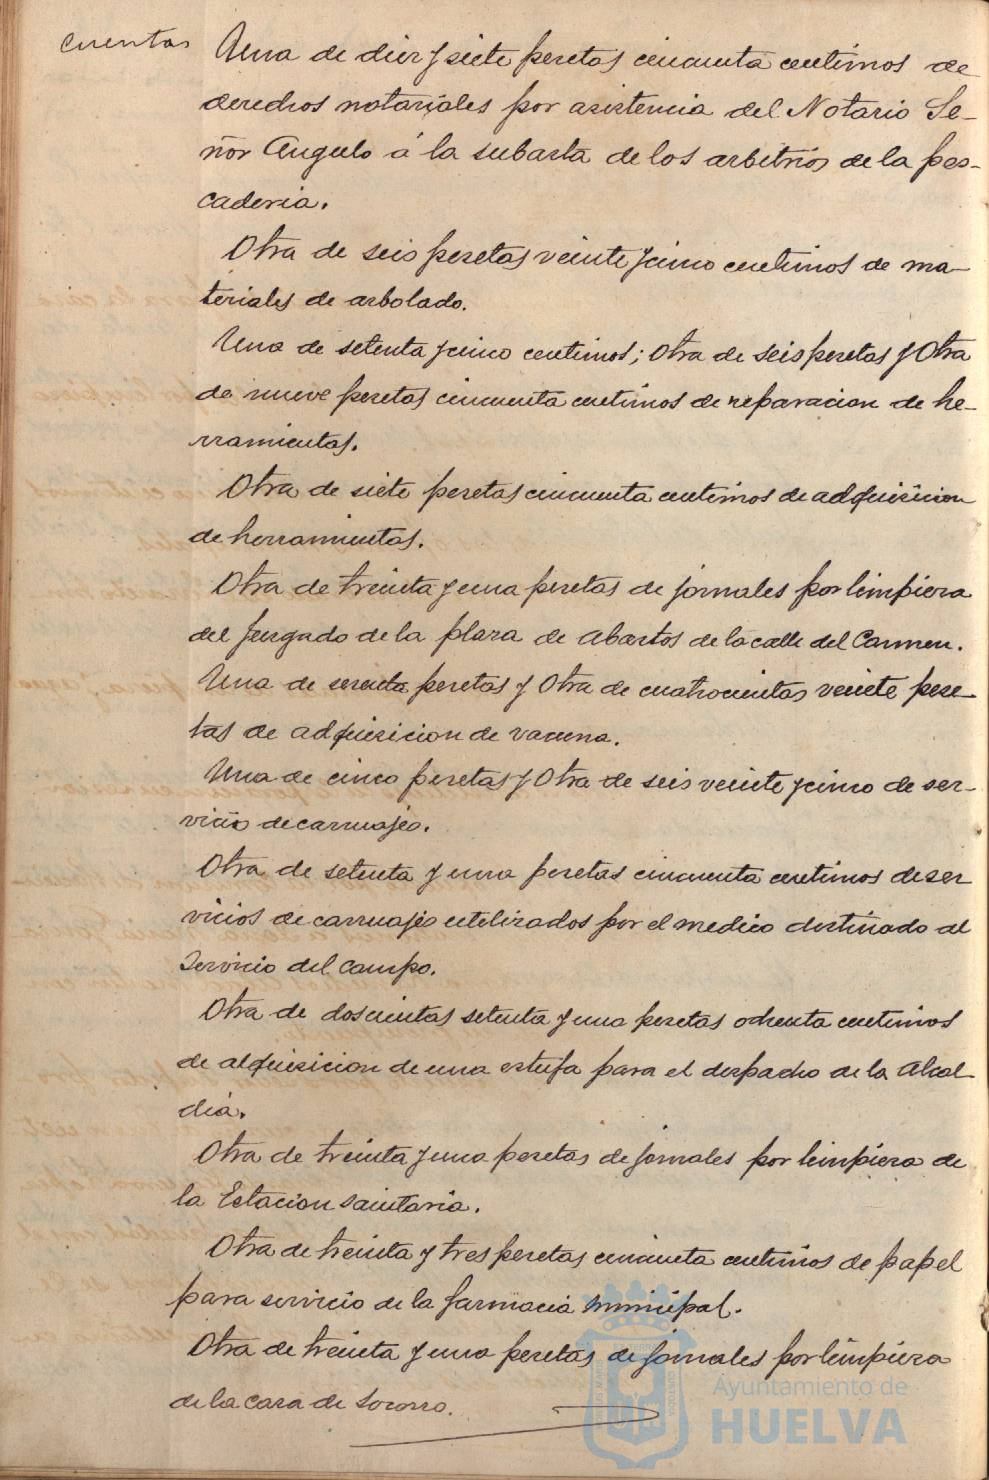 cuentas
Una de diez y siete pesetas cincuenta centimos de
derechos notariales por asistencia del Notario Se-
ñor Angulo á la subasta de los arbitrios de la pes-
caderia.
Otra de seis pesetas veinte y cinco centimos de ma-
teriales de arbolado.
Una de setenta y cinco centimos; Otra de seis pesetas y Otra
de nueve pesetas cincuenta centimos de reparacion de he-
rramientas.
Otra de siete pesetas cincuenta centimos de adquisicion
de herramientas.
Otra de treinta y una pesetas de jornales por limpieza
del Juzgado de la plaza de Abastos de la calle del Carmen.
Una de sesenta pesetas y Otra de cuatrocientas veinte pese-
tas de adquisicion de vacuna.
Una de cinco pesetas y Otra de seis veinte y cinco de ser-
vicio de carruajes.
Otra de setenta y una pesetas cincuenta centimos de ser
vicios de carruajes utilizados por el medico destinado al
Servicio del Campo.
Otra de doscientas setenta y una pesetas ochenta centimos
de adquisicion de una estufa para el despacho de la Alcal
dia.
Otra de treinta y una pesetas de jornales por limpieza de
la Estacion Sanitaria.
Otra de treinta y tres pesetas cincuenta centimos de papel
para servicio de la farmacia municipal.
Otra de treinta y una pesetas de jornales por limpieza
de la casa de Socorro.
Ayuntamiento de
HUELVA